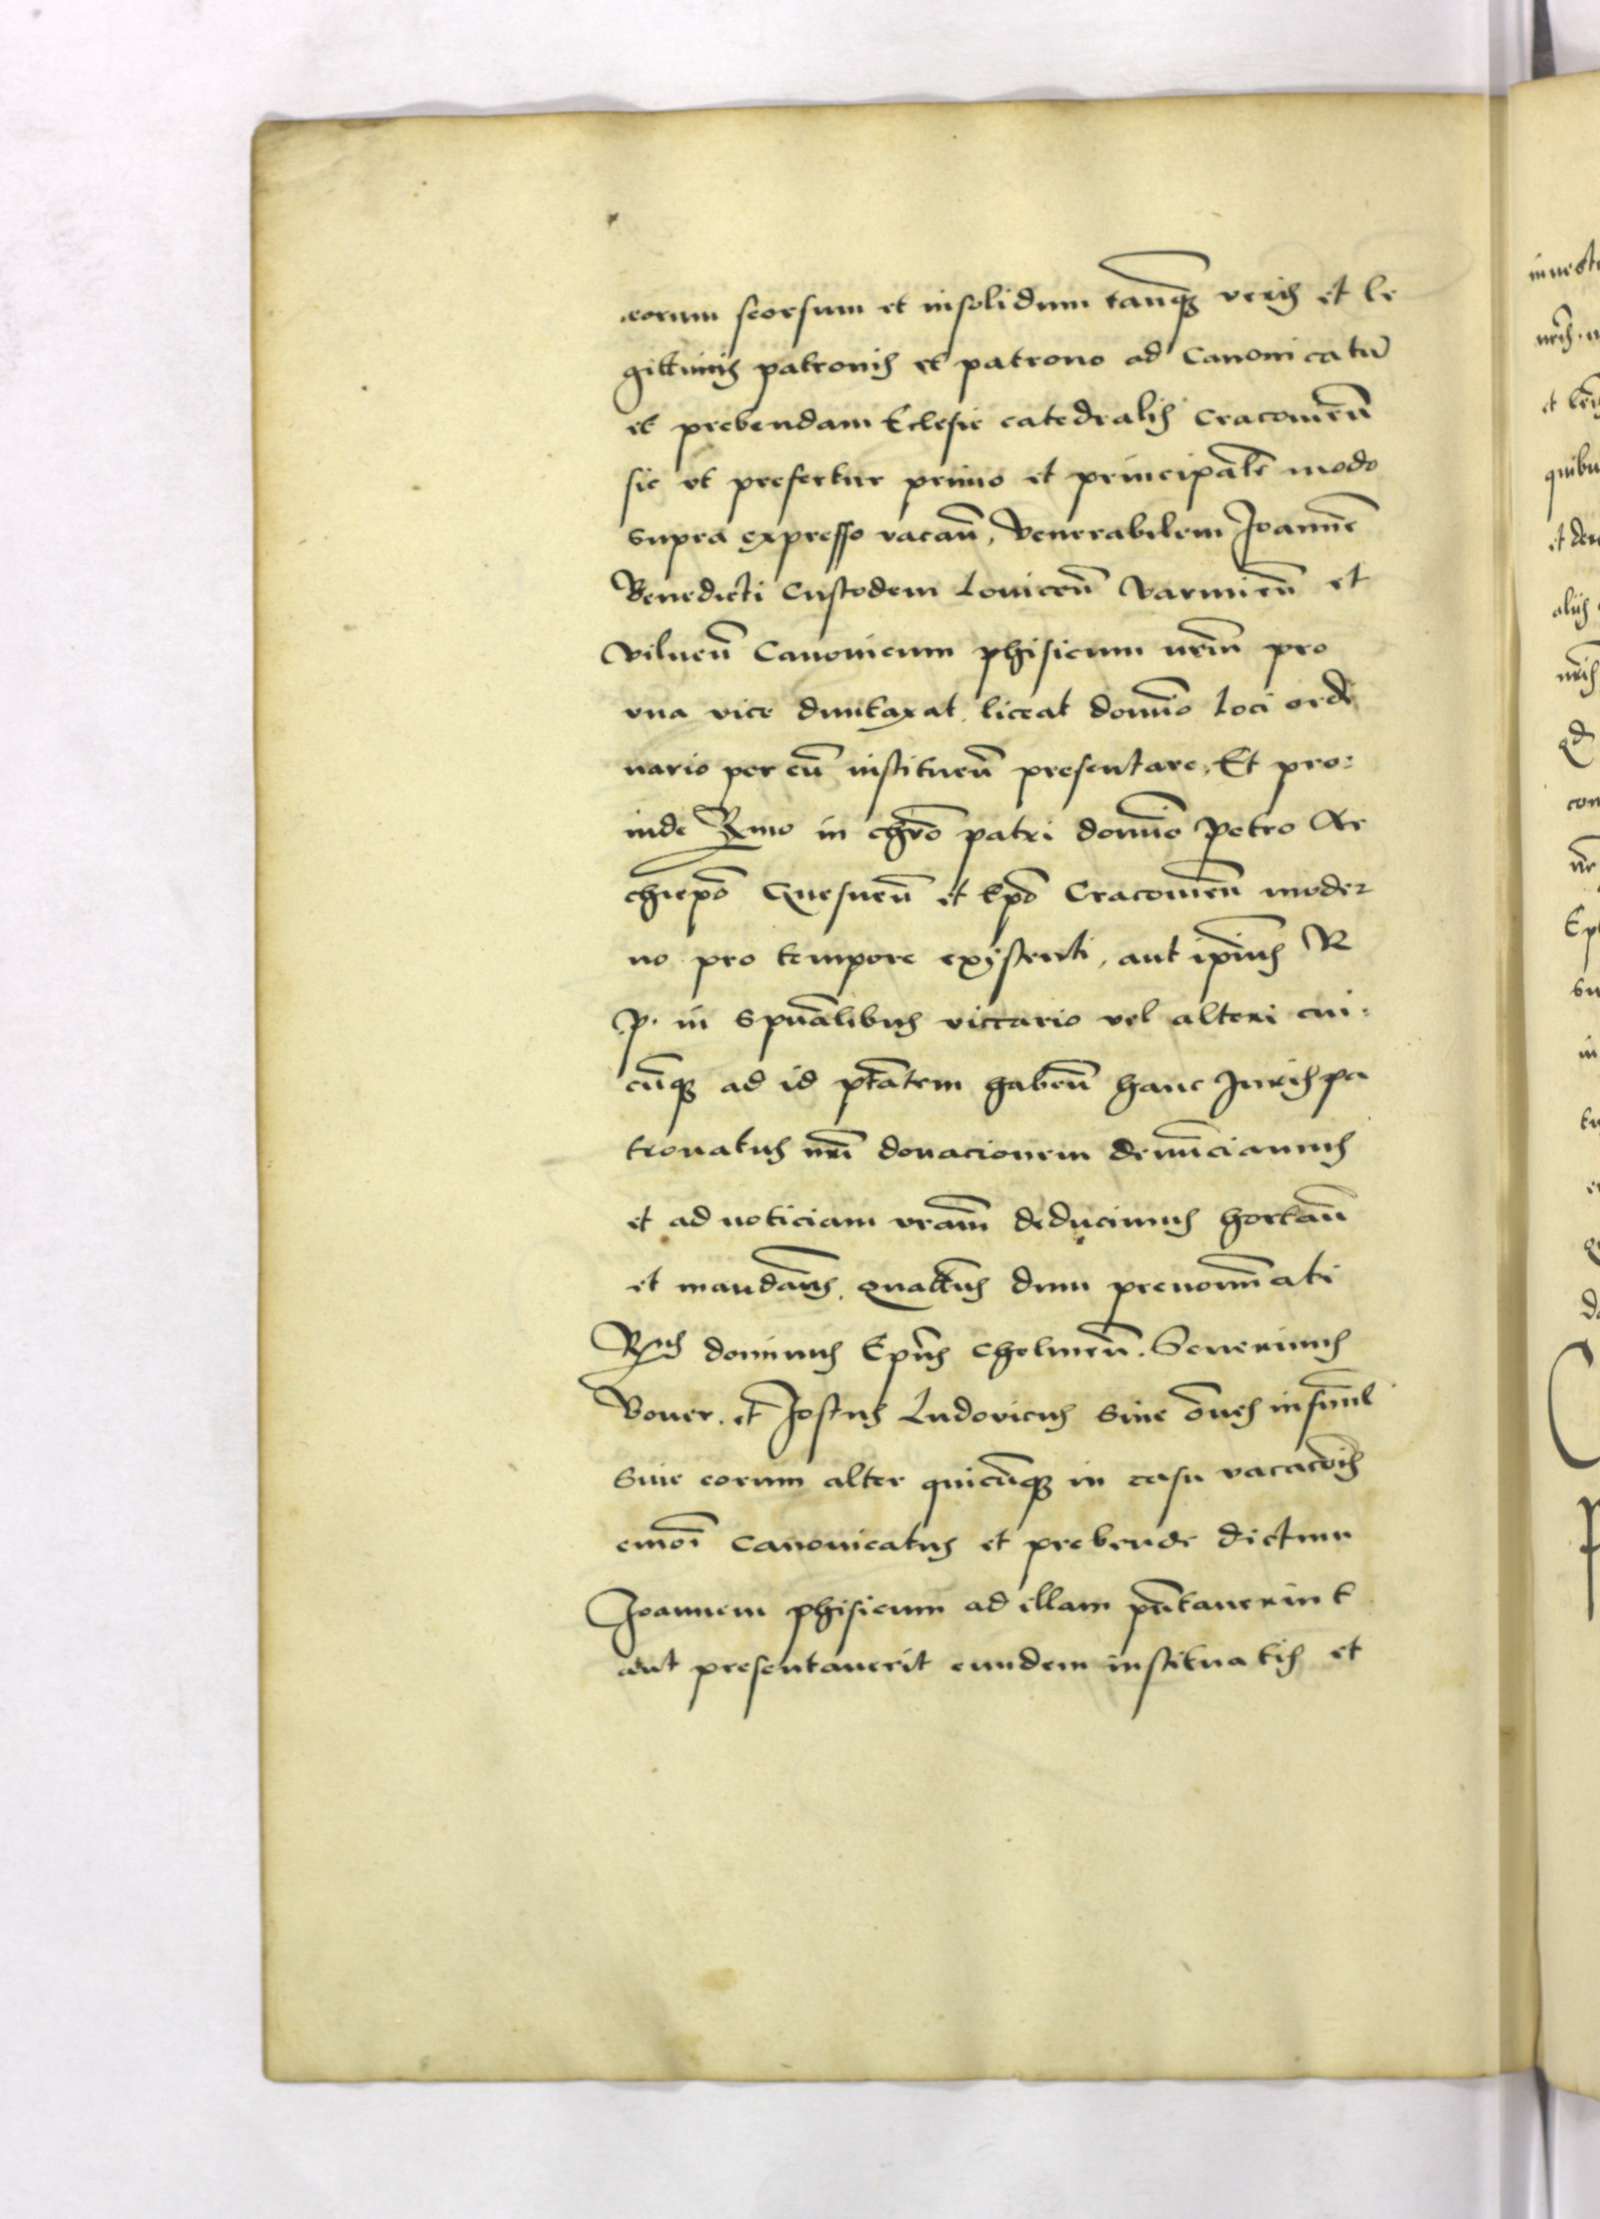 eorum seorsum et insolidum tanq̃ȝ veris et le
gittimis patronis et patrono ad Canonicatũ
et prebendam Eclesie catedralis Cracouieñ
sic vt prefertur primo et principalĩ modo
supra expresso vacañ, Venerabilem Joannẽ
Benedicti Custodem Louiceñ Varmieñ et
Vilneñ Canonicum phisicum nr̃m pro
vna vice duntaxat liceat domĩo Loci ordi
nario per eũ institueñ presentare, Et pro:
inde Rmo in chr̃o patri domĩo Petro Ar
chiep̃o Gnesneñ et Ep̃o Cracouieñ moder
no pro tempore existenti, aut ip̃ius R
P. in Sp̃ualibus viccario vel alteri cui:
cũqȝ ad id p̃tatem habeñ hanc Juris pa
tronatus nr̃i donacionem denũciamus
et ad noticiam vr̃am deducimus hortañ
et mandãns, quaten̄us dum prenomĩati
Rmus dominus Ep̃us Chelmeñ. Seuerinus
Boner, et Jostus Ludovicus Siue oẽs insimĩl
Siue eorum alter quicũqȝ in casu vacacõis
em̃oi Canonicatus et prebende dictum
Joannem phisicum ad illam p̃ñtauerint
aut presentauerit eundem instituatis et